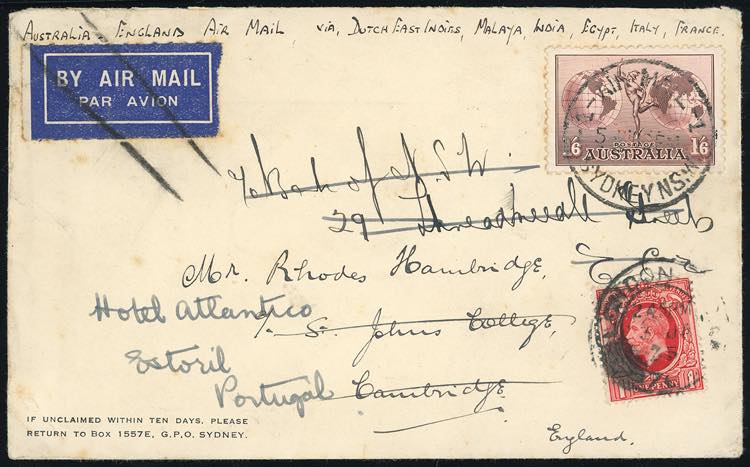 Australia - England Air Mail, via, Dutch East Indies, Malaya, India, Egypt, Italy, France.
BY AIR MAIL
PAR AVION
1/6 POSTAGE 1/6
AUSTRALIA
AIR MAIL
SYDNEY NSW
c/o Bank of N.S.W.
29 Threadneedle Street
E.C.2
Mr. Rhodes Hambridge,
c/o St Johns College,
Cambridge
England.
Hotel Atlantico
Estoril
Portugal
LONDON
IF UNCLAIMED WITHIN TEN DAYS, PLEASE
RETURN TO BOX 1557E, G.P.O. SYDNEY.